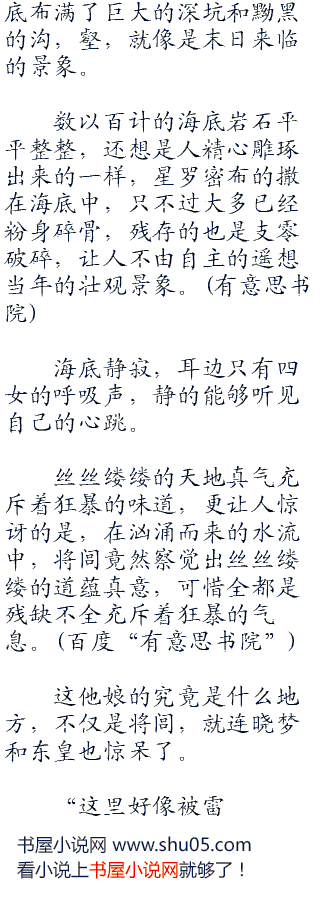 底布满了巨大的深坑和黝黑
的沟，壑，就像是末日来临
的景象。
数以百计的海底岩石平
平整整，还想是人精心雕琢
出来的一样，星罗密布的撒
在海底中，只不过大多已经
粉身碎骨，残存的也是支零
破碎，让人不由自主的遥想
当年的壮观景象。(有意思书
院)
海底静寂，耳边只有四
女的呼吸声，静的能够听见
自己的心跳。
丝丝缕缕的天地真气充
斥着狂暴的味道，更让人惊
讶的是，在汹涌而来的水流
中，将闾竟然察觉出丝丝缕
缕的道蕴真意，可惜全都是
残缺不全充斥着狂暴的气
息。(百度“有意思书院”)
这他娘的究竟是什么地
方，不仅是将闾，就连晓梦
和东皇也惊呆了。
“这里好像被雷
书屋小说网 www.shu05.com
看小说上书屋小说网就够了！